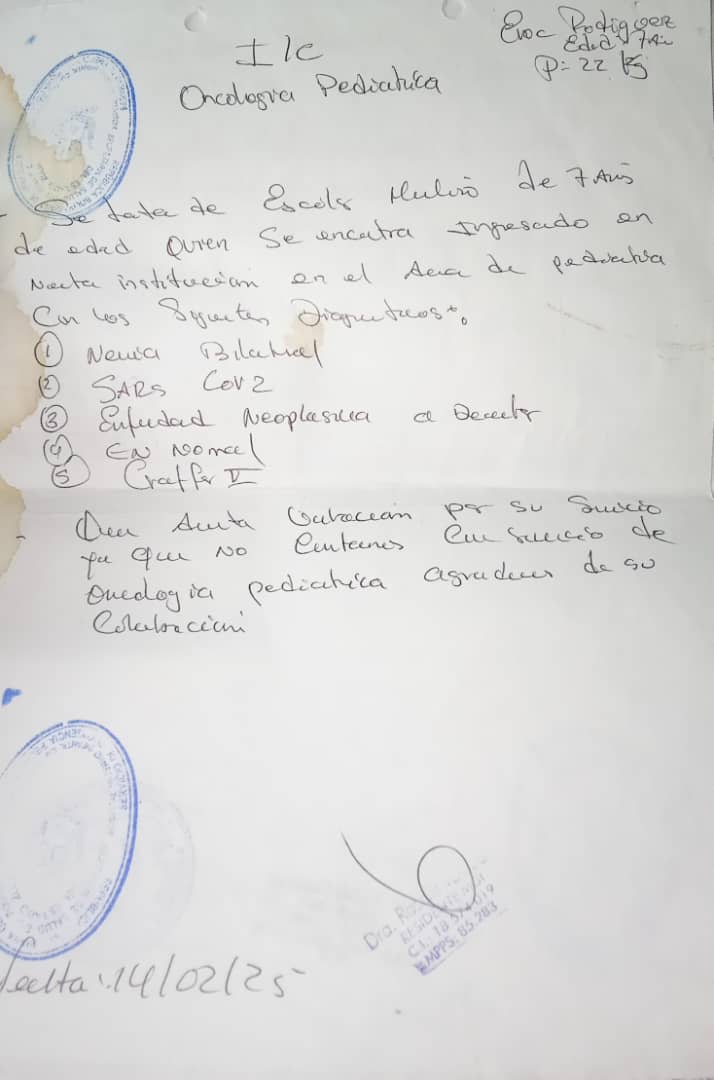 Eroc Rodriguez
Edad 7 Añ
P= 22 kg
IIC
Oncologia Pediatrica
- Se trata de Escolar Masculino de 7 Años
de edad Quien Se encuentra Ingresado en
institucion en el Area de pediatria
Con los Siguientes Diagnosticos:
① Bilateral
② SARS Cov 2
③ Enfermedad Neoplasica a Descartar
④ EN Normal
⑤ Graffar V
- por su Servicio
ya que NO Contamos Con Servicio de
Oncologia pediatrica agradecemos de su
Colaboracion
Dra. Ro
RESIDENTE
C.I. 18.574.019
MPPS: 85.283
Fecha: 14/02/25